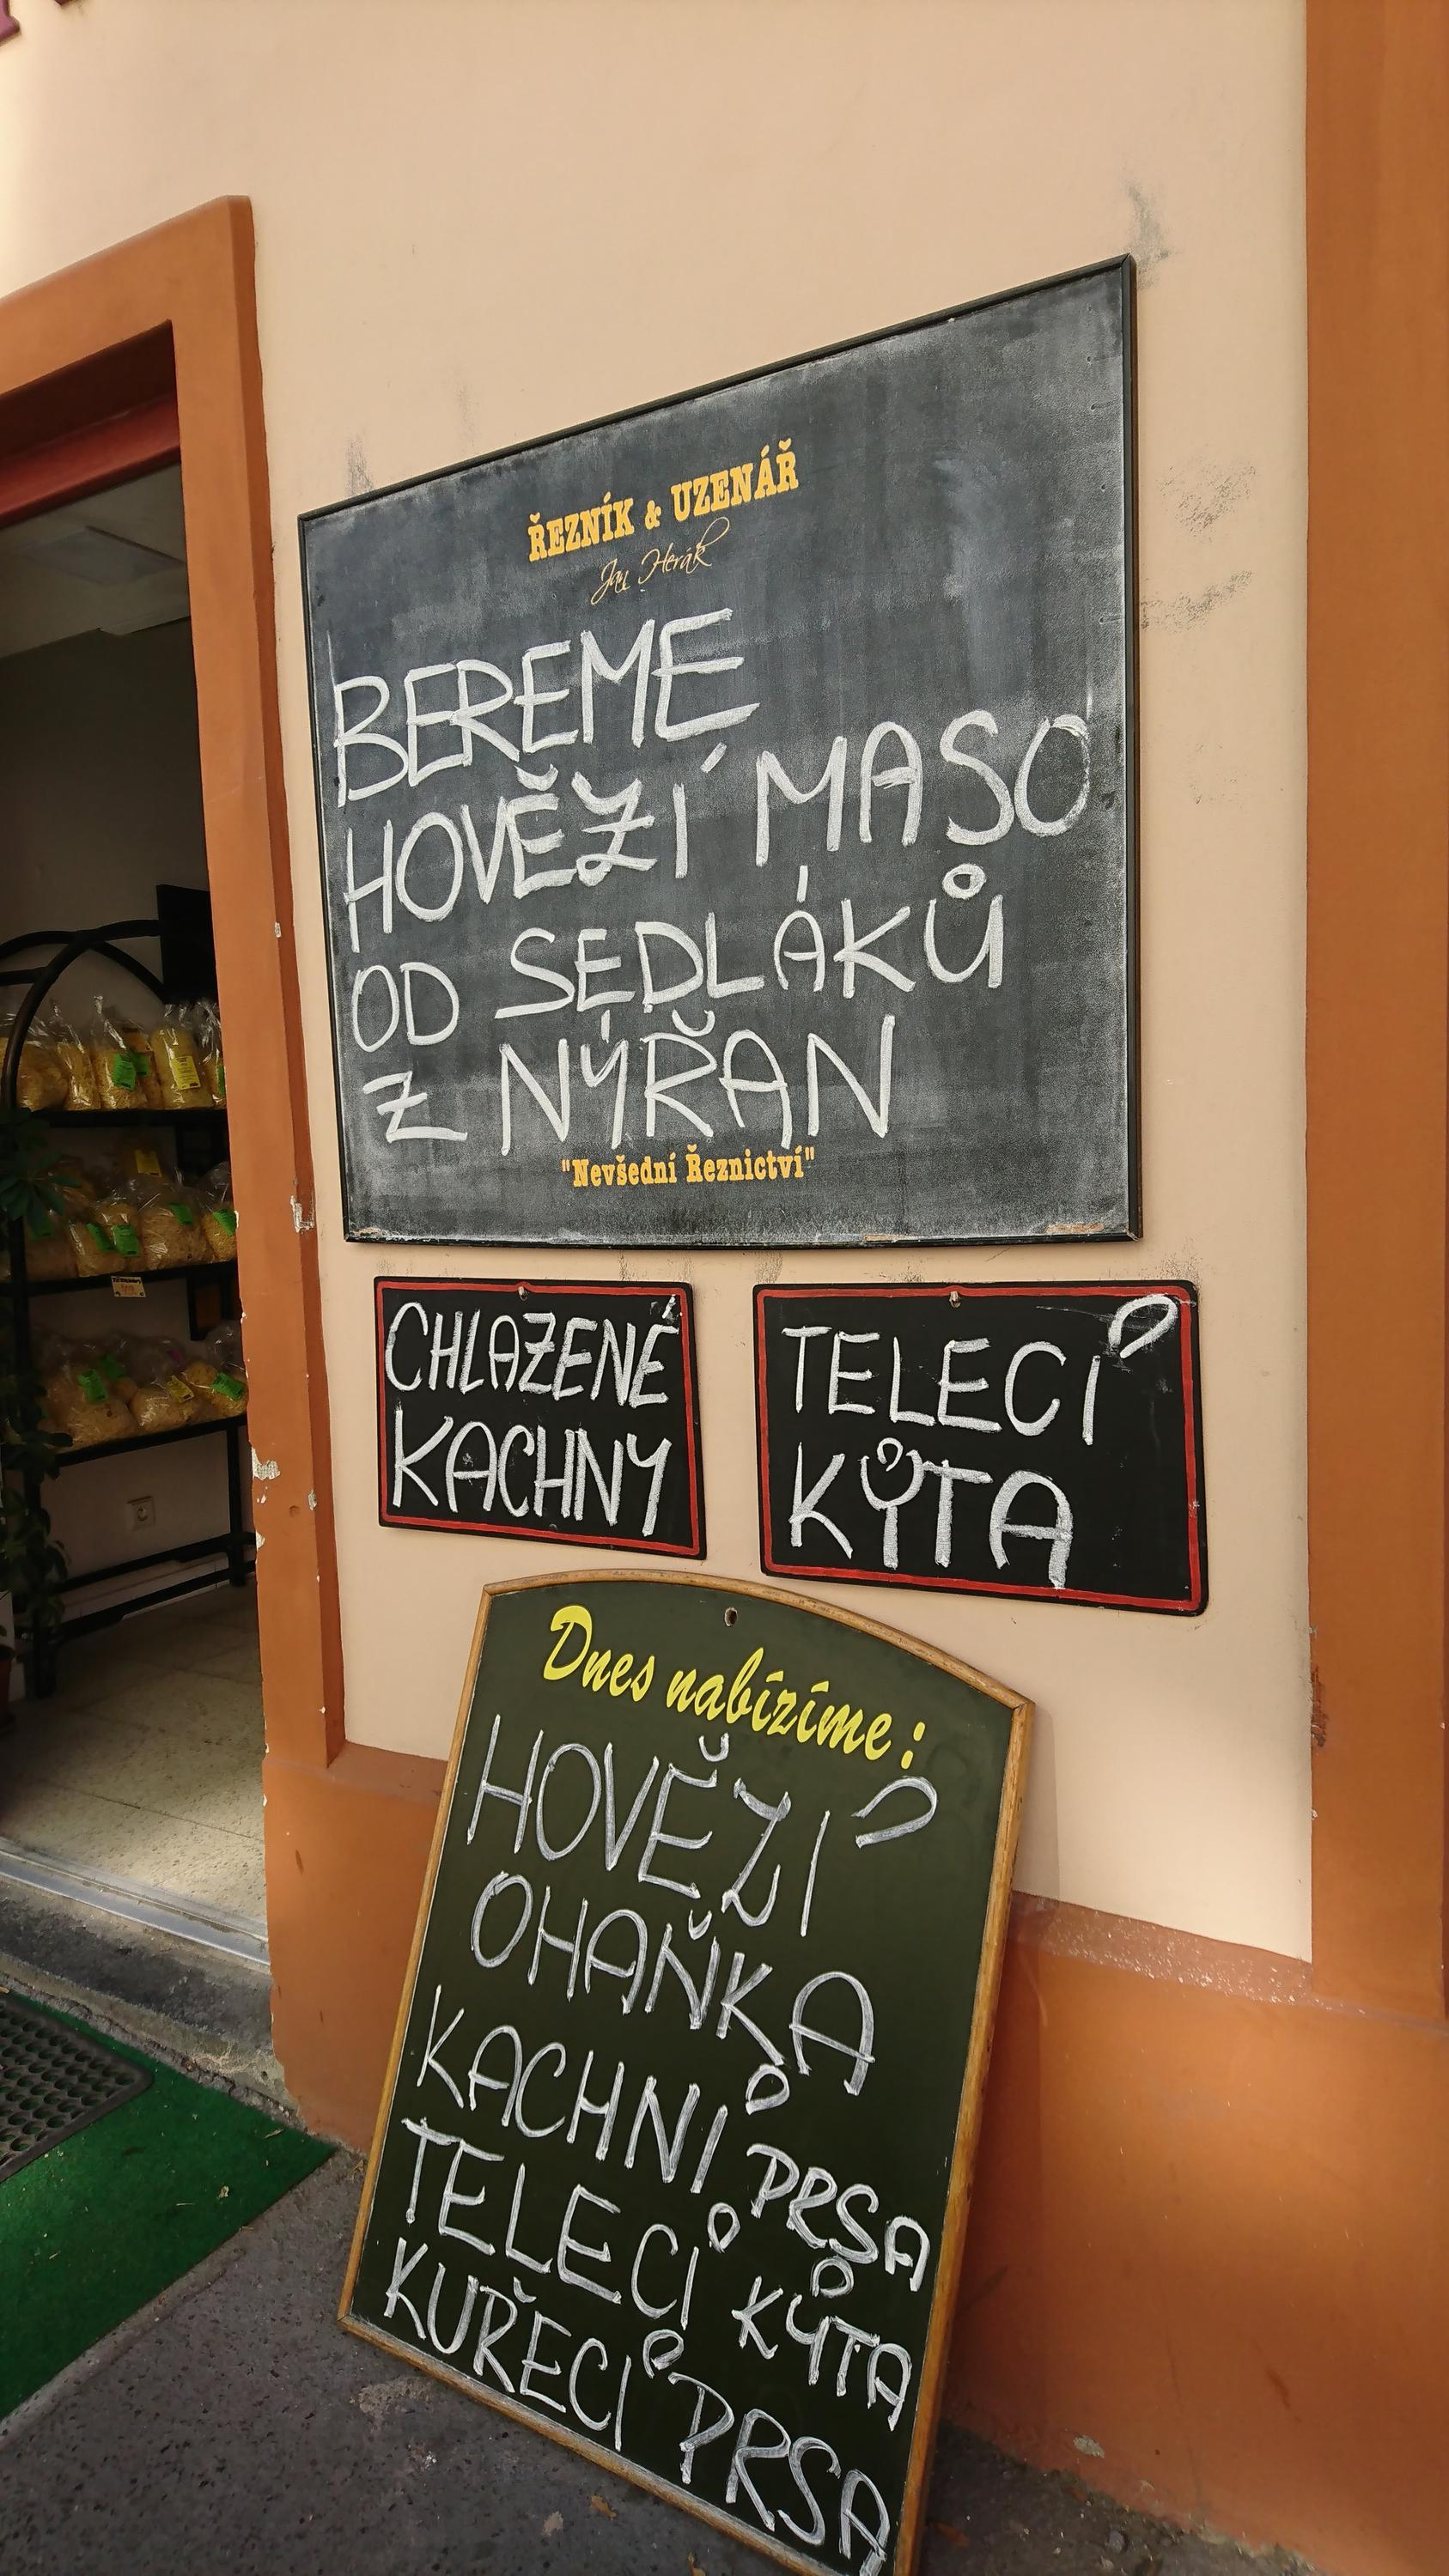 ŘEZNÍK & UZENÁŘ
Jan Herák
BEREME
HOVĚZÍ MASO
OD SEDLÁKŮ
Z NÝŘAN
"Nevšední Řeznictví"
CHLAZENÉ
KACHNY
TELECÍ
KÝTA
Dnes nabízíme:
HOVĚZÍ
OHAŇKA
KACHNÍ PRSA
TELECÍ KÝTA
KUŘECÍ PRSA